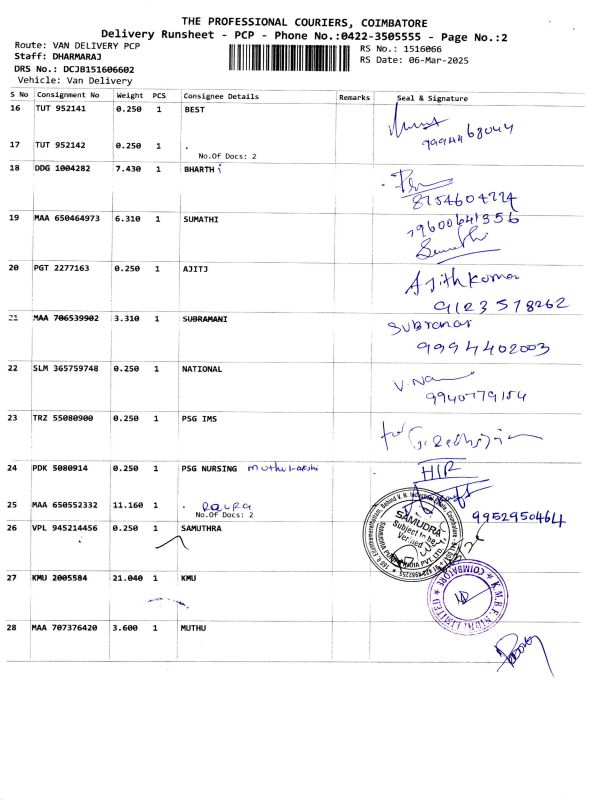 THE PROFESSIONAL COURIERS, COIMBATORE
Delivery Runsheet - PCP - Phone No.:0422-3505555 - Page No.:2
Route: VAN DELIVERY PCP
Staff: DHARMARAJ
DRS No.: DCJB151606602
Vehicle: Van Delivery
RS No.: 1516066
RS Date: 06-Mar-2025
S No Consignment No Weight PCS Consignee Details Remarks Seal & Signature
16 TUT 952141 0.250 1 BEST
9994468044
17 TUT 952142 0.250 1 .
No.Of Docs: 2
18 DDG 1004282 7.430 1 BHARTH i
8754604224
19 MAA 650464973 6.310 1 SUMATHI
79600641356
Sumathi
20 PGT 2277163 0.250 1 AJITJ
Ajithkumar
9123578262
21 MAA 706539902 3.310 1 SUBRAMANI
Subramai
9994402003
22 SLM 365759748 0.250 1 NATIONAL
V.Na
9940779154
23 TRZ 55080900 0.250 1 PSG IMS
for
24 PDK 5080914 0.250 1 PSG NURSING Muthulakshi
HIR
25 MAA 650552332 11.160 1 .
No.Of Docs: 2
9952950464
26 VPL 945214456 0.250 1 SAMUTHRA
SAMUDRA
Subject to be
Verified
27 KMU 2005584 21.040 1 KMU
K.M.B.F. NIDHI LIMITED
COIMBATORE
28 MAA 707376420 3.600 1 MUTHU